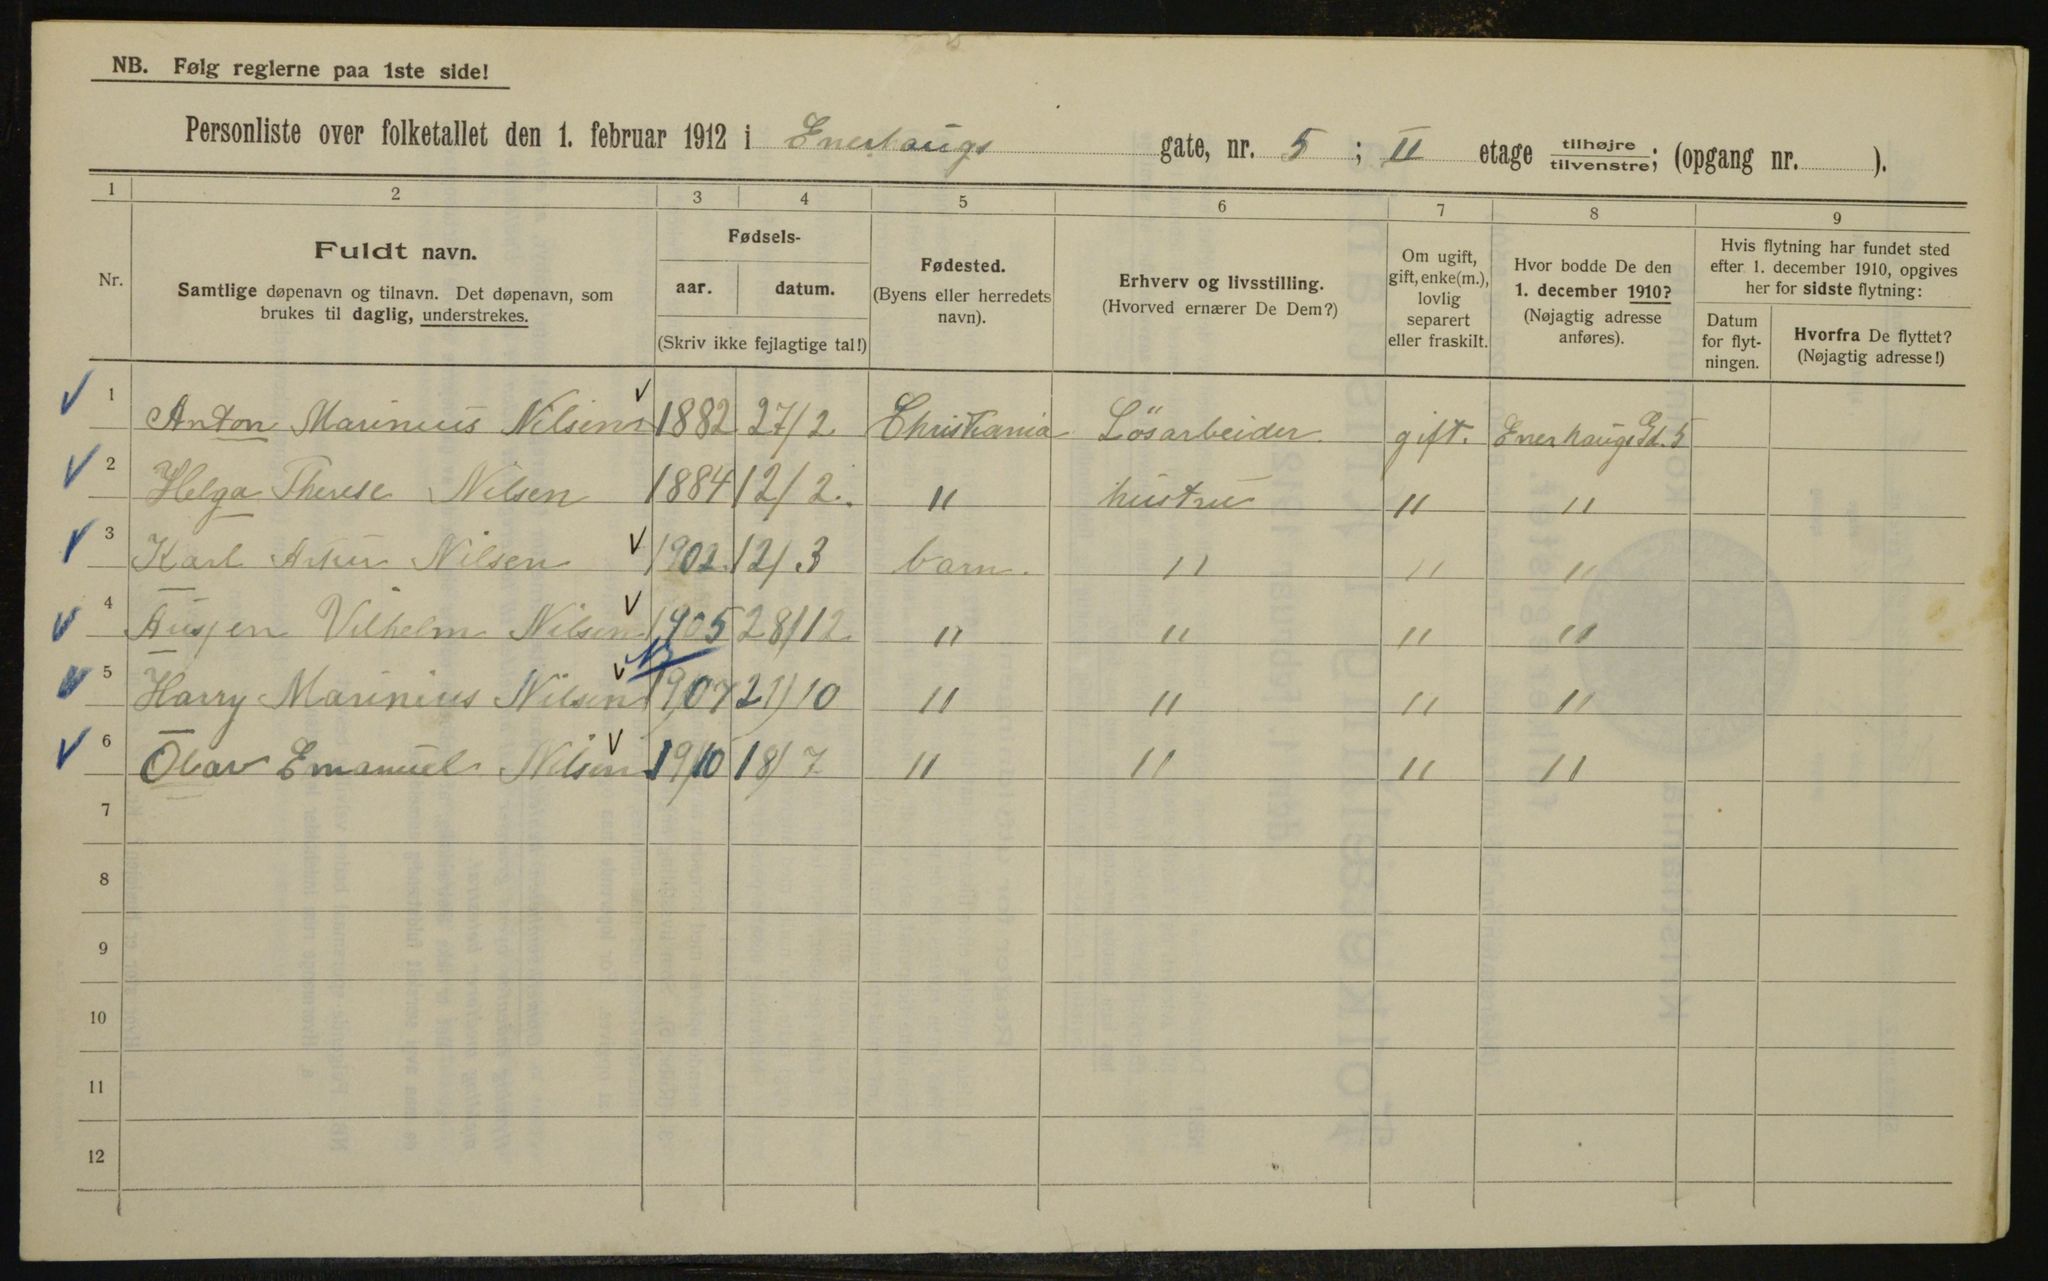 NB. Følg reglerne paa 1ste side!
Personliste over folketallet den 1. februar 1912 i Enerhaugs gate, nr. 5 ; II etage tilhøjre tilvenstre; (opgang nr. ).
1 2 3 4 5 6 7 8 9
Nr.
Fuldt navn.
Samtlige døpenavn og tilnavn. Det døpenavn, som
brukes til daglig, understrekes.
Fødsels-
aar. datum.
(Skriv ikke fejlagtige tal!)
Fødested.
(Byens eller herredets
navn).
Erhverv og livsstilling.
(Hvorved ernærer De Dem?)
Om ugift,
gift, enke(m.),
lovlig
separert
eller fraskilt.
Hvor bodde De den
1. december 1910?
(Nøjagtig adresse
anføres).
Hvis flytning har fundet sted
efter 1. december 1910, opgives
her for sidste flytning:
Datum
for flyt-
ningen.
Hvorfra De flyttet?
(Nøjagtig adresse!)
1 Anton Marinius Nilsen 1882 27/2 Christiania Lösarbeider gift. Enerhaugs Gd. 5
2 Helga Therese Nilsen 1884 12/2. " hustru " "
3 Karl Artur Nilsen 1902 12/3 barn. " " "
4 Vilhelm Nilsen 1905 28/12 " " " "
5 Harry Marinius Nilsen 1907 21/10 " " " "
6 Olav Emanuel Nilsen 1910 18/7 " " " "
7
8
9
10
11
12